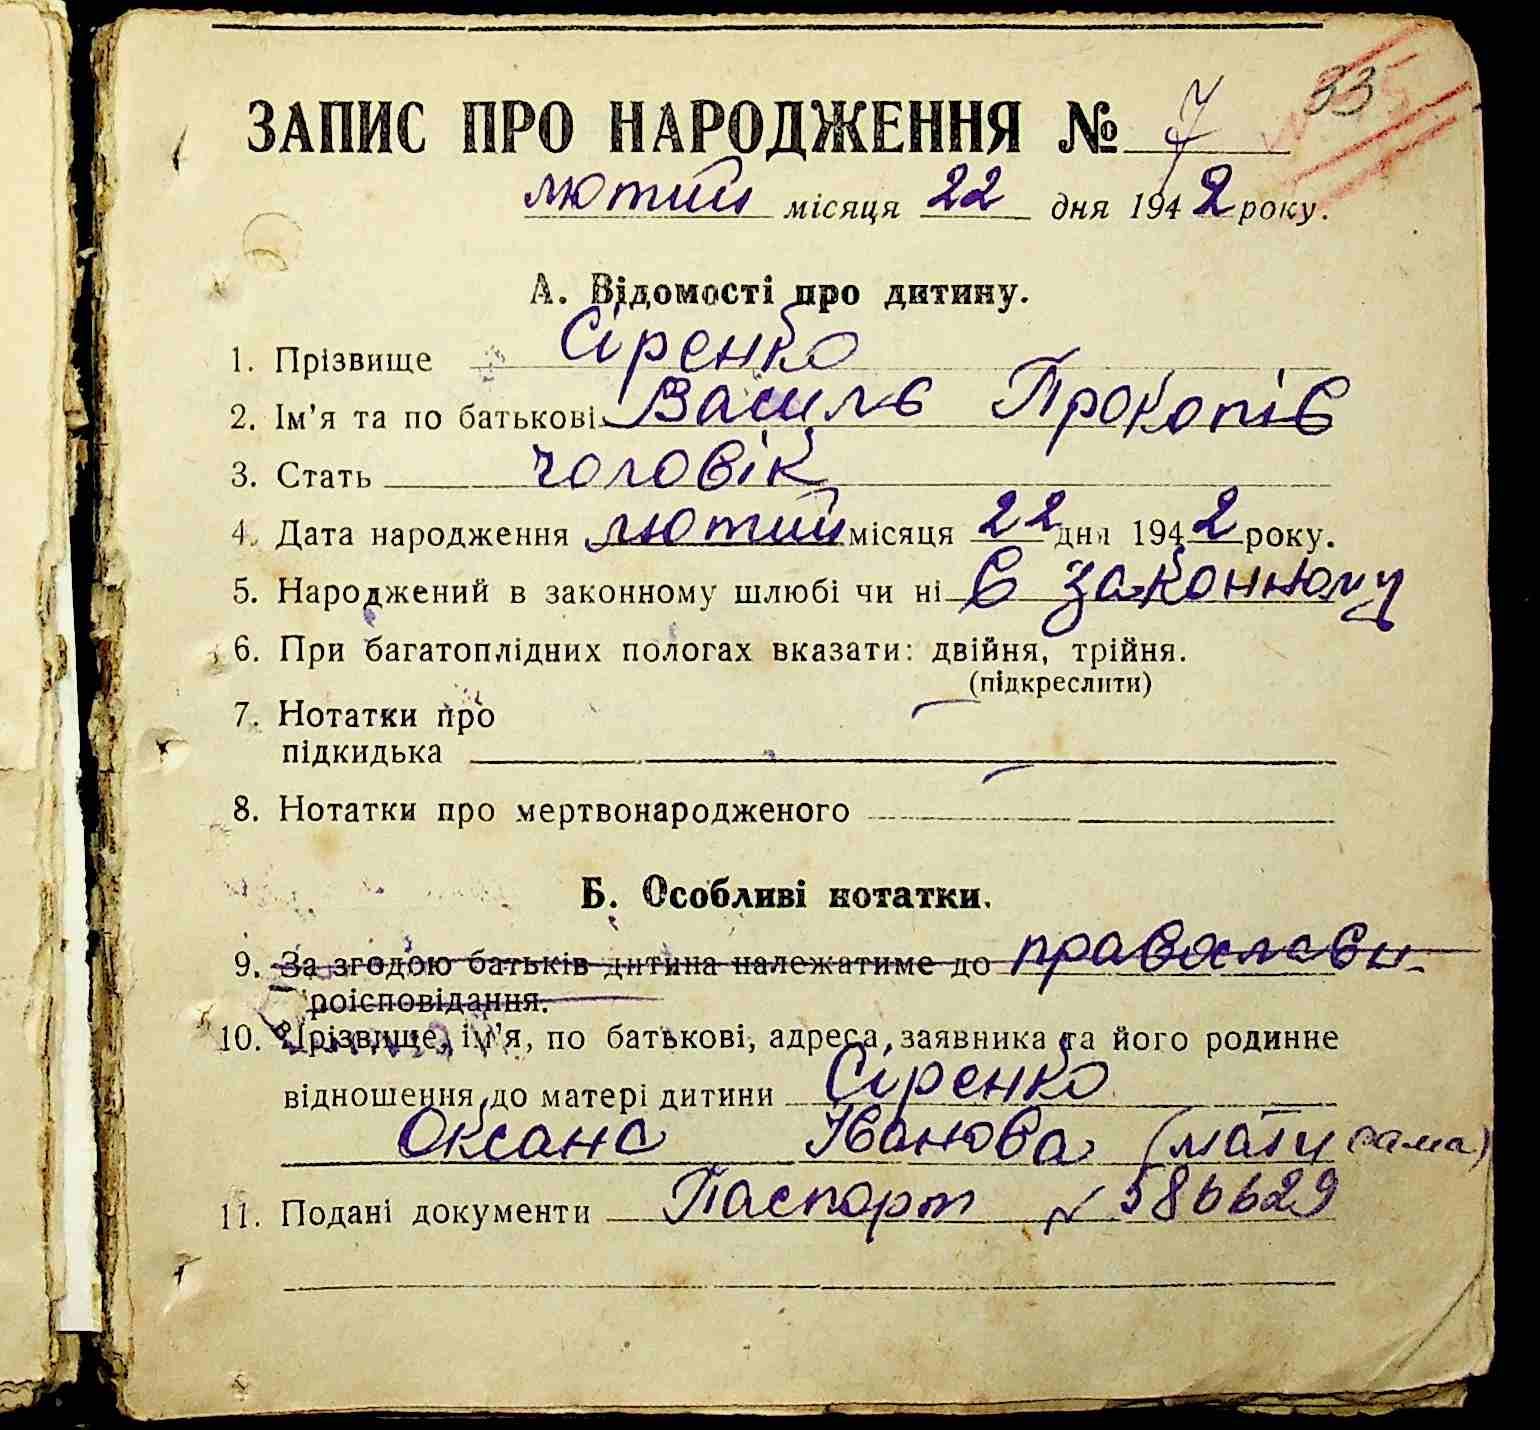 33
ЗАПИС ПРО НАРОДЖЕННЯ № 7
лютий місяця 22 дня 1942 року.
А. Відомості про дитину.
1. Прізвище Сіренко
2. Ім'я та по батькові Василь Прокопів
3. Стать чоловік
4. Дата народження лютий місяця 22 дня 1942 року.
5. Народжений в законному шлюбі чи ні в законному
6. При багатоплідних пологах вказати: двійня, трійня.
(підкреслити)
7. Нотатки про
підкидька
8. Нотатки про мертвонародженого
Б. Особливі нотатки.
9. За згодою батьків дитина належатиме до православн.
роісповідання.
10. Прізвище, ім'я, по батькові, адреса, заявника та його родинне
відношення до матері дитини Сіренко
Оксана Іванова (мати сама)
11. Подані документи Паспорт № 586629